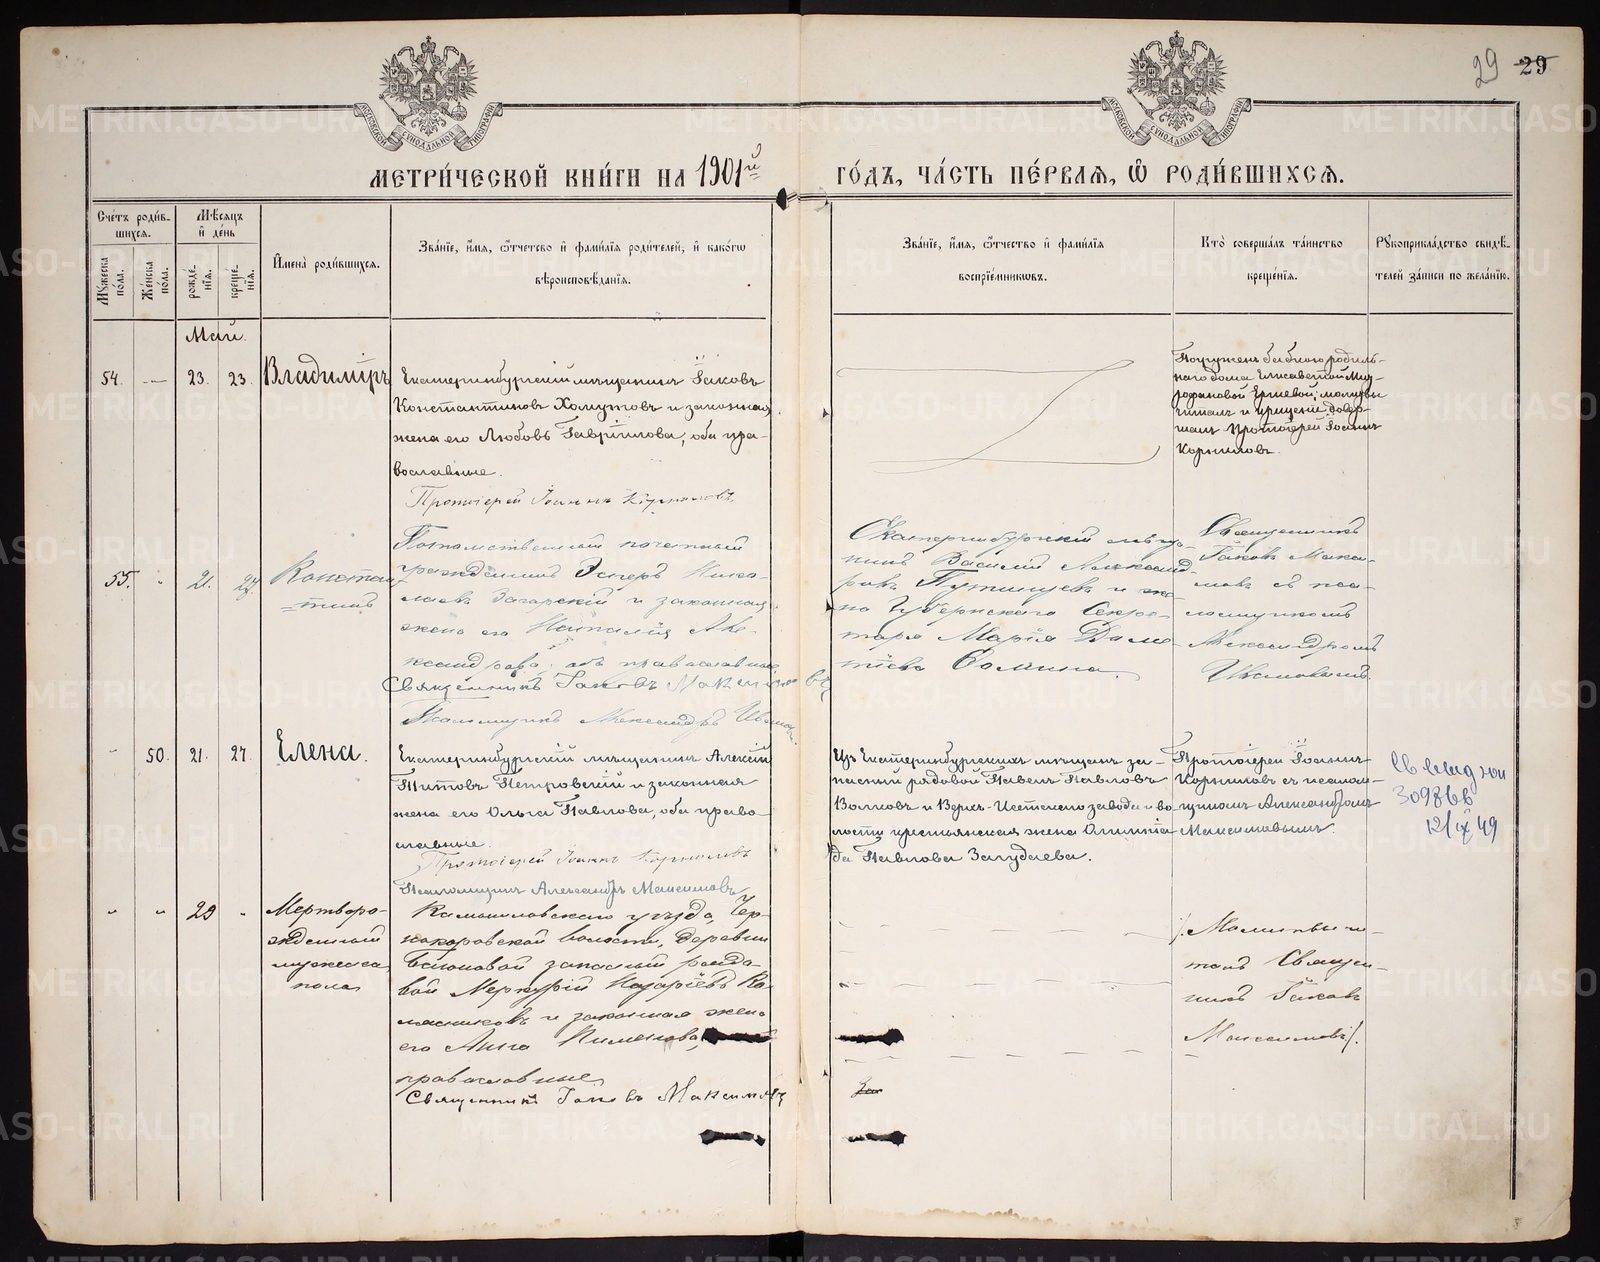 29 29
МОСКОВСКОЙ СУНОДАЛЬНОЙ ТИПОГРАФІИ
МОСКОВСКОЙ СУНОДАЛЬНОЙ ТИПОГРАФІИ
МЕТРИ́ЧЕСКОЙ КНИ́ГИ НА 1901й ГО́ДЪ, ЧА́СТЬ ПЕ́РВАЯ, Ѡ РОДИ́ВШИХСЯ.
Сче́тъ роди́в-
шихся.
Му́жеска по́ла.
Же́нска по́ла.
Мѣ́сяцъ
и де́нь
рожде́-
нія.
креще́-
нія.
Имена̀ роди́вшихся.
Зва́ніе, и́мя, ѻ́тчество и фами́лія роди́телей, и како́гѡ
вѣроисповѣ́данія.
Зва́ніе, и́мя, ѻ́тчество и фами́лія
воспріе́мникѡвъ.
Кто̀ соверша́лъ та́инство
креще́нія.
Рукоприкла́дство свидѣ́-
телей за́писи по жела́нію.
Май.
54. — 23. 23. Владиміръ
Екатеринбургскій мѣщанинъ Іаковъ
Константиновъ Хомутовъ и законная
жена его Любовь Гавріилова, оба пра-
вославные.
Протоіерей Іоаннъ Корниловъ
Погружен бабкою родиль-
наго дома Елисаветой Мит-
рофановой Ершевой; молитвы
читалъ и крещеніе довер-
шилъ Протоіерей Іоаннъ
Корниловъ.
55. " 21. 27. Констан
=тинъ
Потомственный почетный
гражданинъ Эсперъ Нико-
лаевъ Загарскій и законная
жена его Наталія Але-
ксандрова, оба православные
Священникъ Іаковъ Максимовъ
Псаломщикъ Александръ
Екатеринбургскій мѣща-
нинъ Василій Александ-
ровъ и же-
на Губернскаго Секре-
таря Марія
Священникъ
Іаковъ Макси-
мовъ съ пса-
ломщикомъ
Александромъ
" 50. 21. 27. Елена.
Екатеринбургскій мѣщанинъ Алексій
Титовъ Петровскій и законная
жена его Ольга Павлова, оба право-
славные.
Протоіерей Іоаннъ Корниловъ
Псаломщикъ Александръ Максимовъ
Изъ Екатеринбургскихъ мѣщанъ за-
пасный рядовой Павелъ Павловъ
Волковъ и Верхъ-Исетскаго завода и во
лости крестьянская жена Олимпіа
да Павлова Загудаева.
Протоіерей Іоаннъ
Корниловъ съ псалом-
щикомъ Александромъ
Максимовымъ.
309866
12/IX 49
" " 29 " Мертворо-
жденный
мужеска
пола
Камышловскаго уѣзда,
волости, деревни
запасный рядо
вой Меркурій Назаріевъ
и законная жена
его Анна Пименова,
православные
Священникъ Іаковъ Максимовъ
Молитвы чи-
талъ Священ-
никъ Іаковъ
Максимовъ.
METRIKI.GASO-URAL.RU